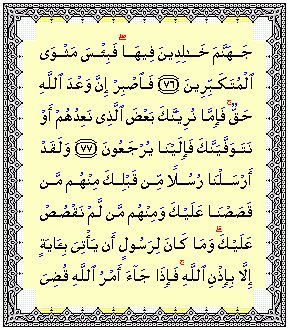 جَهَنَّمَ خَـٰلِدِينَ فِيهَاۖ فَبِئْسَ مَثْوَى
ٱلْمُتَكَبِّرِينَ ﴿٧٦﴾ فَٱصْبِرْ إِنَّ وَعْدَ ٱللَّهِ
حَقٌّۚ فَإِمَّا نُرِيَنَّكَ بَعْضَ ٱلَّذِى نَعِدُهُمْ أَوْ
نَتَوَفَّيَنَّكَ فَإِلَيْنَا يُرْجَعُونَ ﴿٧٧﴾ وَلَقَدْ
أَرْسَلْنَا رُسُلًا مِّن قَبْلِكَ مِنْهُم مَّن
قَصَصْنَا عَلَيْكَ وَمِنْهُم مَّن لَّمْ نَقْصُصْ
عَلَيْكَۗ وَمَا كَانَ لِرَسُولٍ أَن يَأْتِىَ بِـَٔايَةٍ
إِلَّا بِإِذْنِ ٱللَّهِۚ فَإِذَا جَآءَ أَمْرُ ٱللَّهِ قُضِىَ